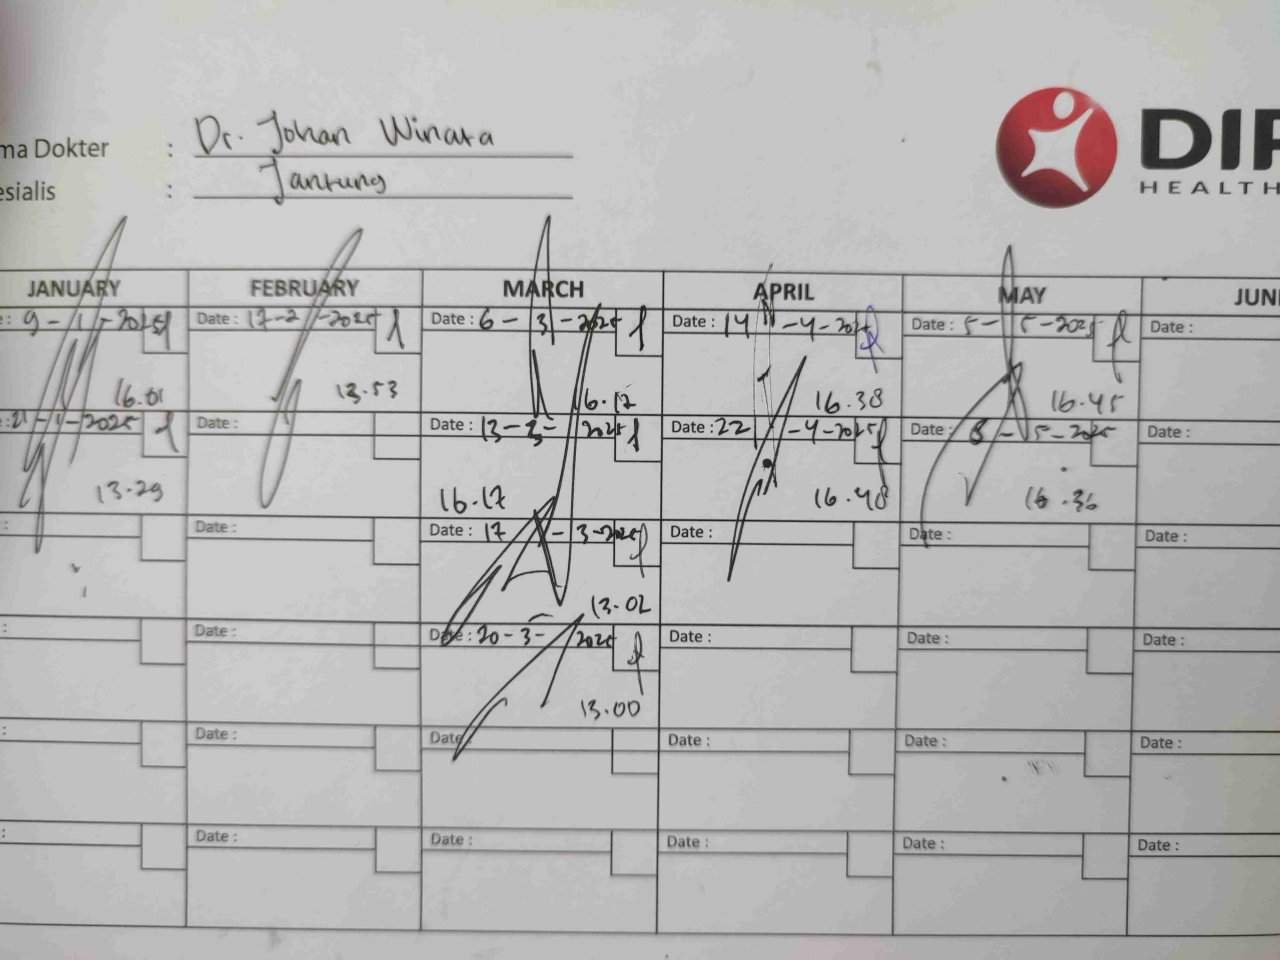 ma Dokter : Dr. Johan Winata
esialis : Jantung
DIP
HEALTH
JANUARY FEBRUARY MARCH APRIL MAY JUNE
: 9-1-2025 Date : 17-2-2025 Date : 6-3-2025 Date : 14-4-2025 Date : 5-5-2025 Date :
16.01 13.53 16.12 16.38 16.45
: 21-1-2025 Date : Date : 13-3-2025 Date : 22-4-2025 Date : 8-5-2025 Date :
13.29 16.17 16.48 16.36
: Date : Date : 17-3-2025 Date : Date : Date :
13.02
: Date : Date : 20-3-2025 Date : Date : Date :
13.00
: Date : Date : Date : Date : Date :
: Date : Date : Date : Date : Date :